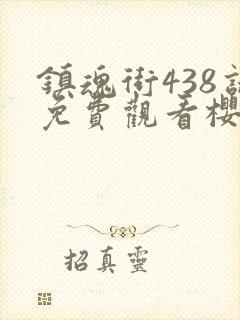 鎮魂街438
免費觀看櫻
招真靈